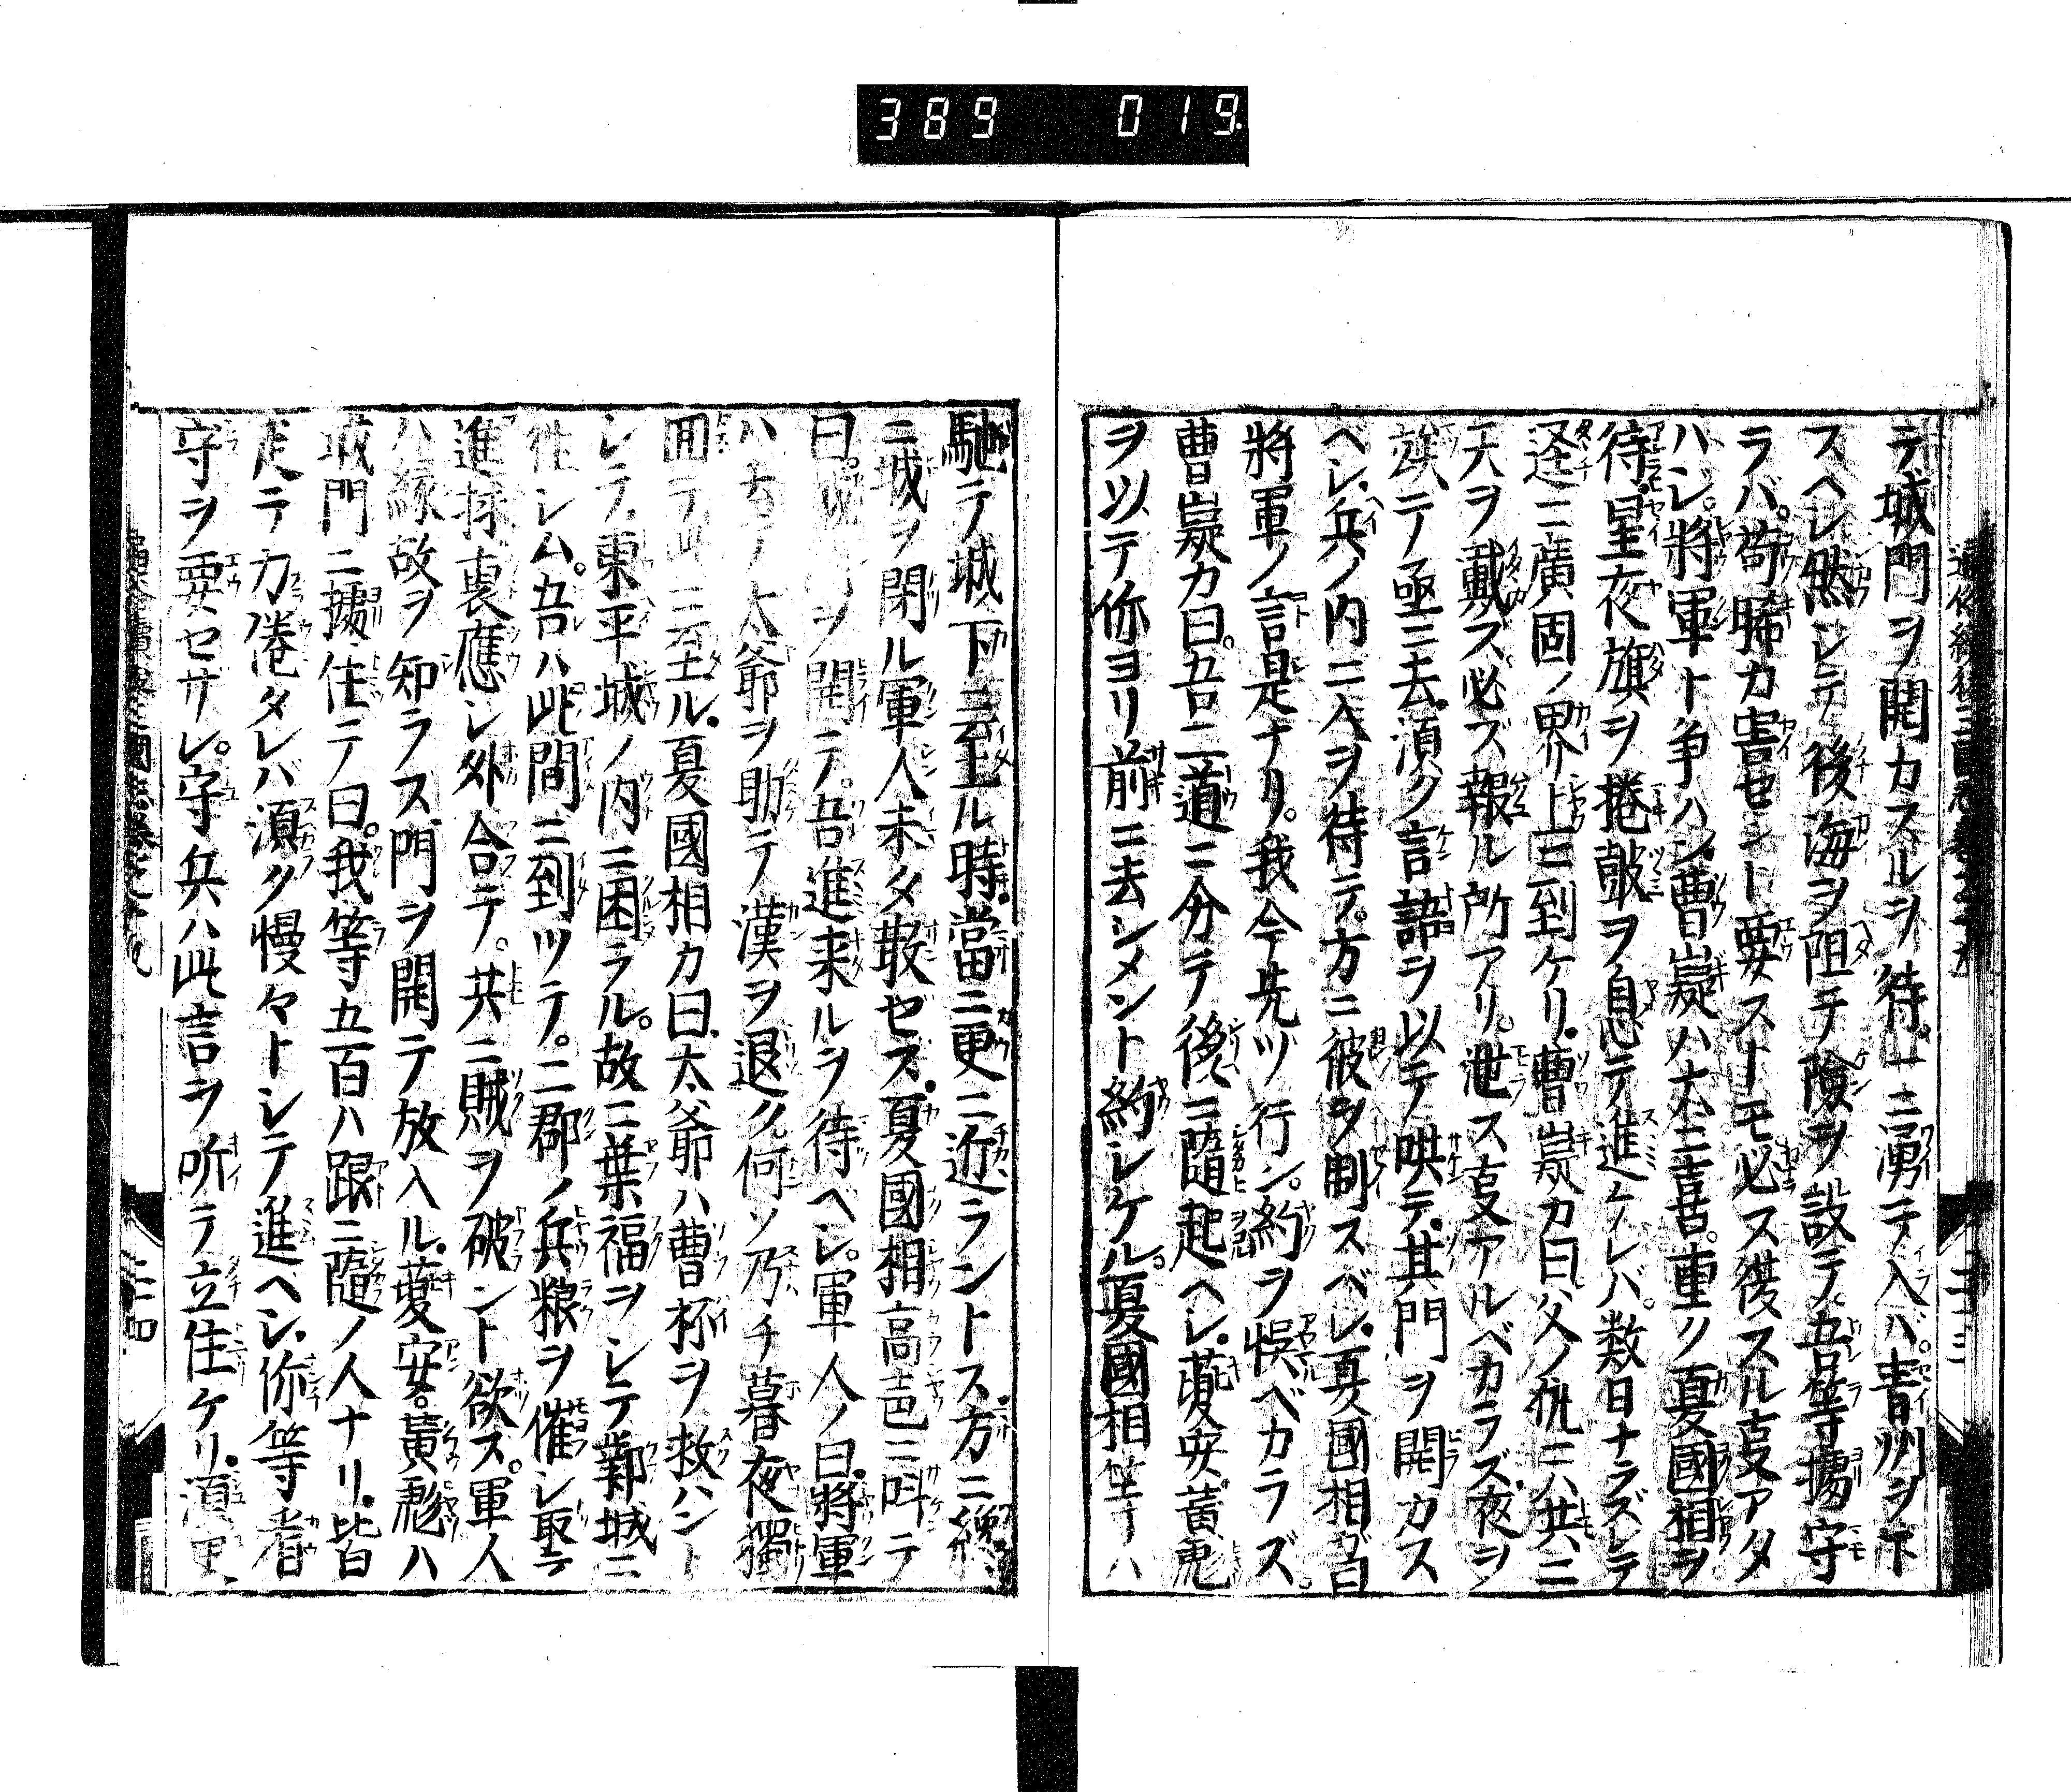 389 019
テ城門ヲ開カスルヲ待。一ニ湧テ入バ。青州ヲ下
スヘレ然レテ後海ヲ阻テ險ヲ設テ。吾等據守
ラバ。苟晞カ害セント要ストモ必ス後スル叓アタ
ハレ。將軍ト争ハン。曹嶷ハ大ニ喜。重ク夏國相ヲ
待。星夜旗ヲ捲皷ヲ息テ進ケレバ。数日ナラズレテ
逕ニ廣固ノ界上ニ到ケリ。曹嶷カ曰父ノ仇ニハ共ニ
天ヲ戴ス必ズ報ル所アリ。泄ス叓アルベカラズ。夜ヲ
テ亟ニ去。須ク言語ヲ以テ哄テ。其門ヲ開カス
ベレ。兵ノ内ニ入ヲ待テ。方ニ彼ヲ制スベレ。夏國相カ曰
將軍ノ言是ナリ。我今先ヅ行ン。約ヲ悞ベカラズ。
曹嶷カ曰。吾二道ニ分テ後ニ隨起ヘレ。夔安。黄
ヲ以テ你ヨリ前ニ去シメント約レケル。夏國相等ハ
馳テ城下ニ至ル時。當ニ更ニ近ラントス方ニ纔
ニ城ヲ閉ル軍人未タ散ゼス。夏國相高声ニ叫テ
曰。ヲ開テ。吾進来ルヲ待ヘレ。軍人ノ曰。將軍
ハ太爺ヲ助テ漢ヲ退ク。何ソ乃チ暮夜獨
囬テ此ニ至ル。夏國相カ曰。太爺ハ曹杯ヲ救ハント
レテ。東平城ノ内ニ困ラル。故ニ葉福ヲシテ鄴城ニ
徃レム。吾ハ此間ニ到ツテ。二郡ノ兵粮ヲ催レ取テ
進裏應レ外合テ。共ニ賊ヲ破ント欲ス。軍人
ハ縁故ヲ知ラス門ヲ開テ放入ル。夔安。黄彪ハ
城門ニ據住テ曰。我等五百ハ跟ニ隨ノ人ナリ。皆
走テ力倦タレバ須ク慢々トレテ進ヘシ。你等着
守ヲ要セサレ。守兵ハ此言ヲ听テ立住ケリ。須臾